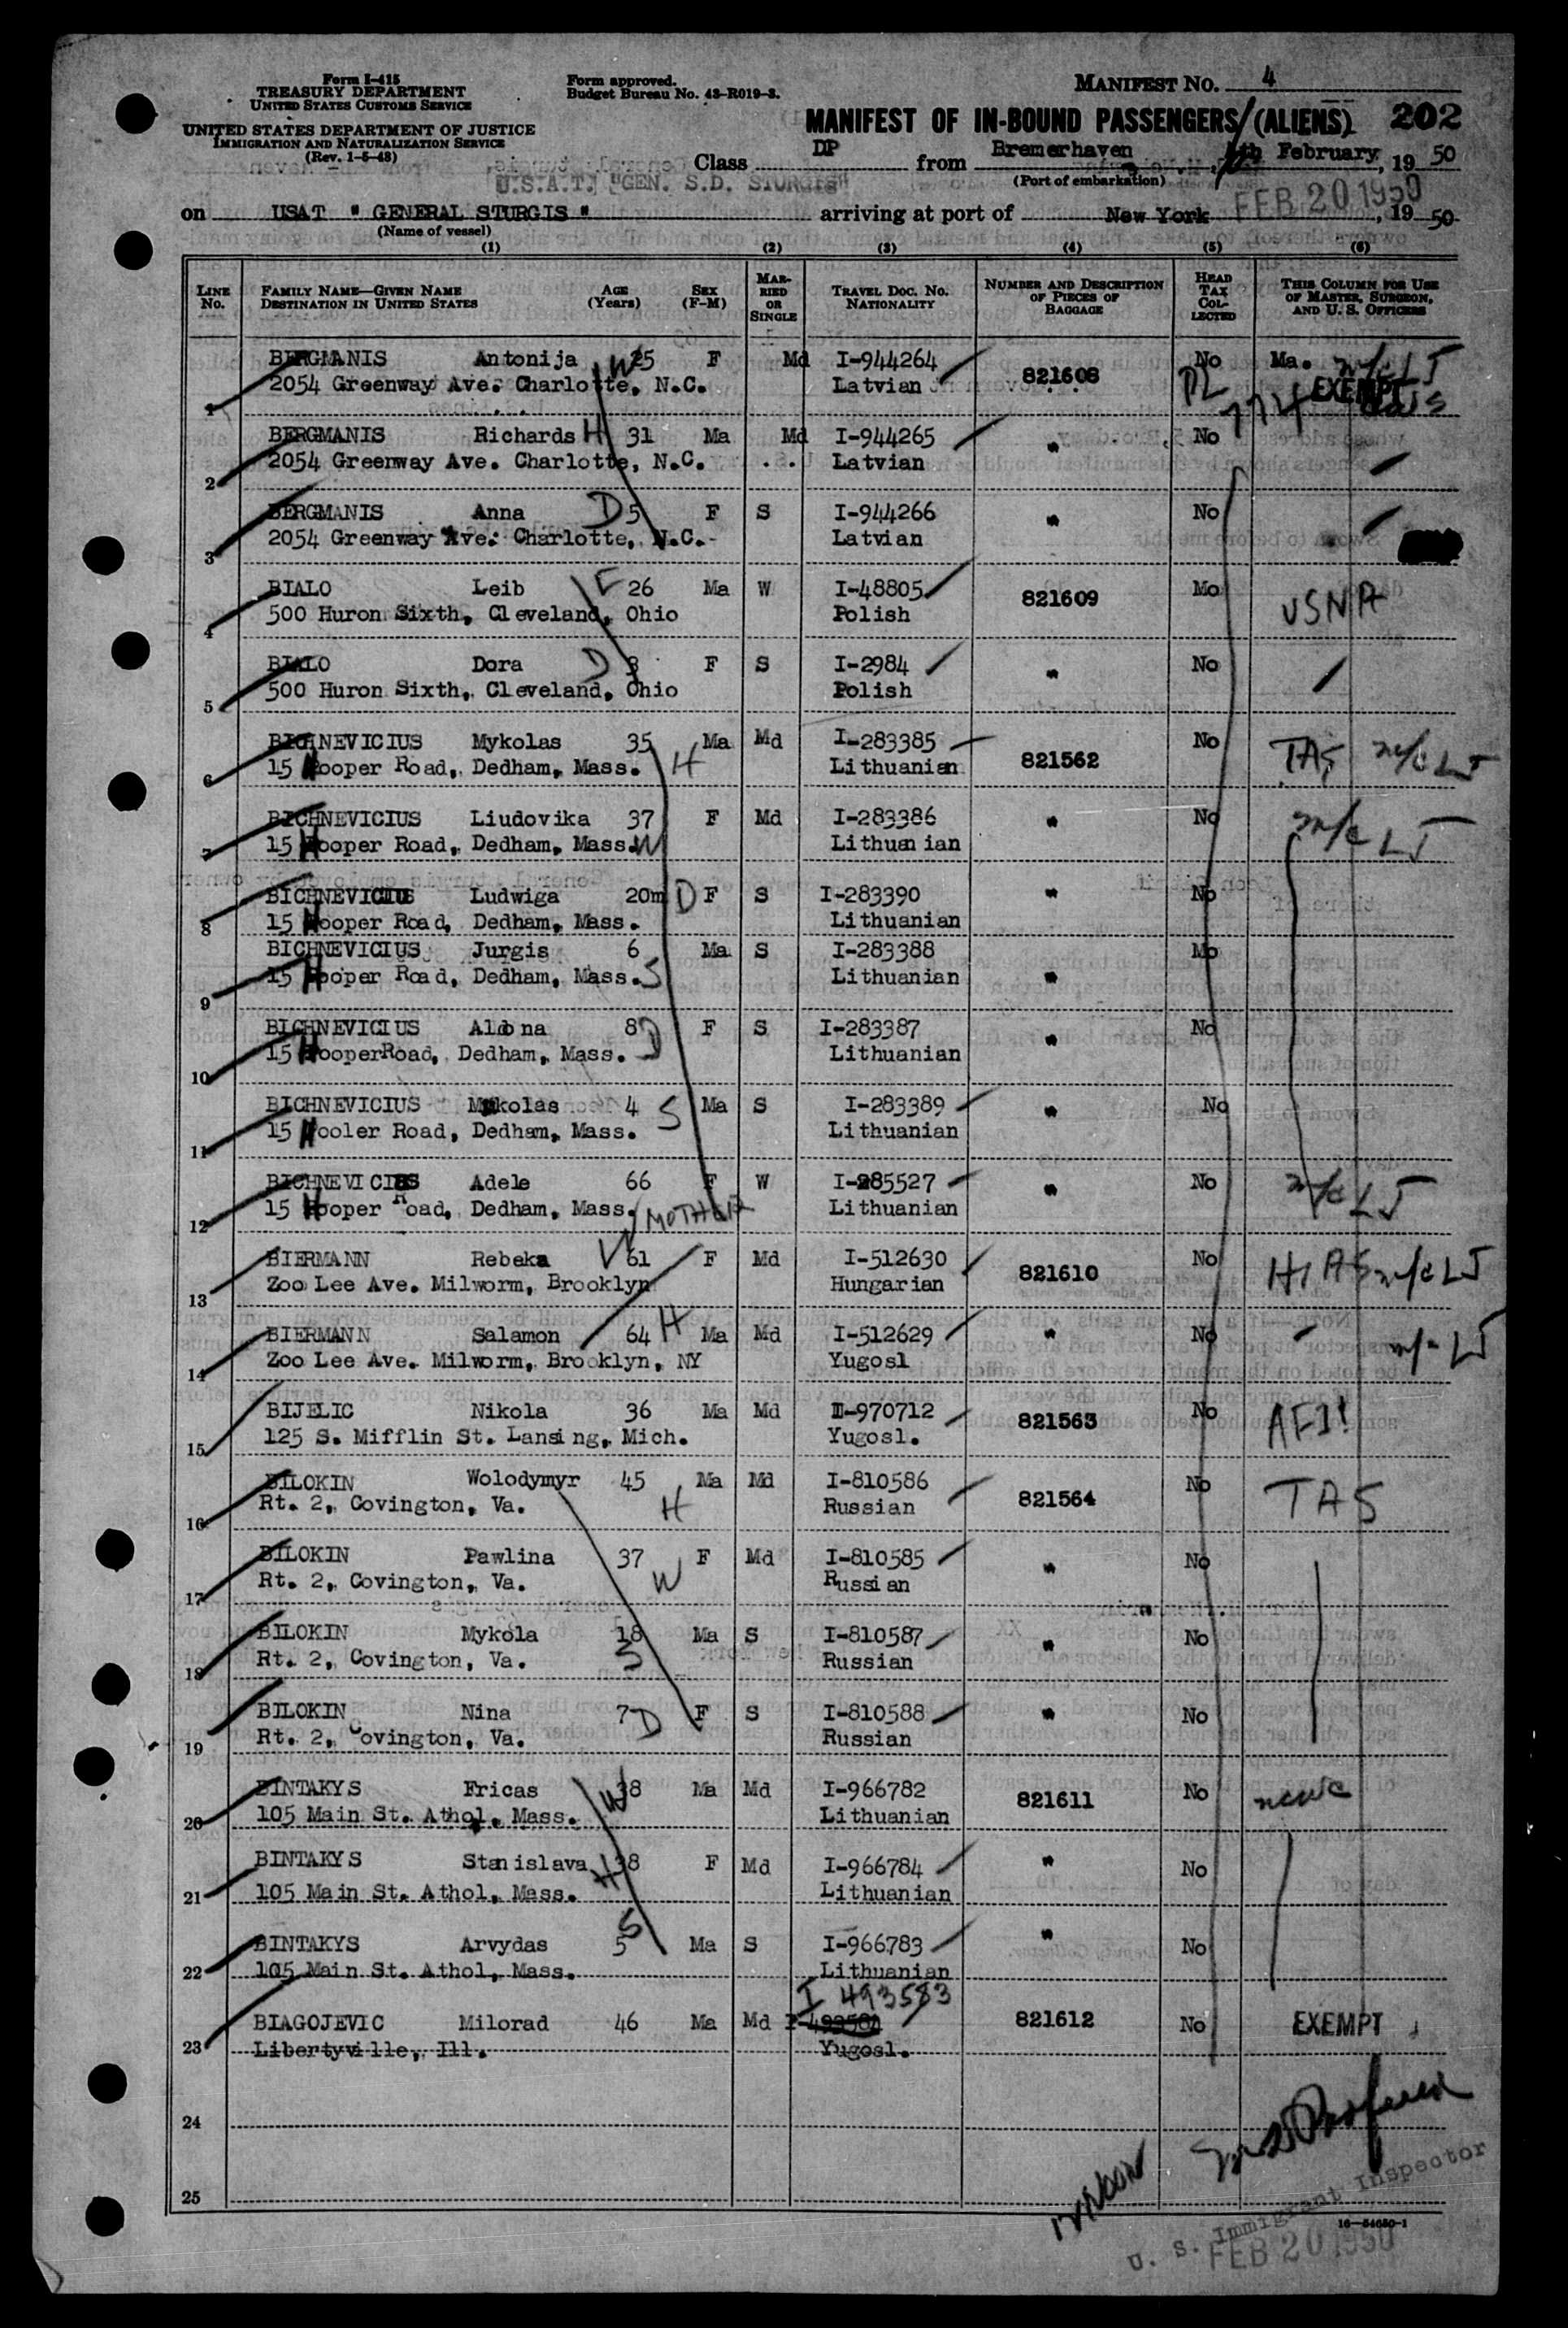 Form I-415
TREASURY DEPARTMENT
UNITED STATES CUSTOMS SERVICE
UNITED STATES DEPARTMENT OF JUSTICE
IMMIGRATION AND NATURALIZATION SERVICE
(Rev. 1-5-48)
Form approved.
Budget Bureau No. 43-R019-3.
MANIFEST NO. 4
MANIFEST OF IN-BOUND PASSENGERS (ALIENS) 202
Class DP from Bremerhaven, February, 19 50
(Port of embarkation)
U.S.A.T. "GEN. S.D. STURGIS" FEB 20 1950
on USAT " GENERAL STURGIS " arriving at port of New York, 19 50
(Name of vessel)
(1) (2) (3) (4) (5) (6)
LINE No. FAMILY NAME—GIVEN NAME DESTINATION IN UNITED STATES AGE (Years) SEX (F-M) MARRIED OR SINGLE TRAVEL DOC. NO. NATIONALITY NUMBER AND DESCRIPTION OF PIECES OF BAGGAGE HEAD TAX COLLECTED THIS COLUMN FOR USE OF MASTER, SURGEON, AND U. S. OFFICERS
BERGMANIS Antonija W 25 F Md I-944264 821608 No Ma. n/c LJ
1 2054 Greenway Ave. Charlotte, N.C. Latvian EXEMPT
BERGMANIS Richards H 31 Ma Md I-944265 " No
2 2054 Greenway Ave. Charlotte, N.C. Latvian
BERGMANIS Anna D 5 F S I-944266 " No
3 2054 Greenway Ave. Charlotte, N.C. Latvian
BIALO Leib F 26 Ma W I-48805 821609 Mo USNA
4 500 Huron Sixth, Cleveland, Ohio Polish
BIALO Dora D 3 F S I-2984 " No
5 500 Huron Sixth, Cleveland, Ohio Polish
BICHNEVICIUS Mykolas 35 Ma Md I-283385 821562 No TAS n/c LJ
6 15 Hooper Road, Dedham, Mass. H Lithuanian
BICHNEVICIUS Liudovika 37 F Md I-283386 " No n/c LJ
7 15 Hooper Road, Dedham, Mass. W Lithuanian
BICHNEVICIUS Ludwiga 20m D F S I-283390 " No
8 15 Hooper Road, Dedham, Mass. Lithuanian
BICHNEVICIUS Jurgis 6 Ma S I-283388 Mo
9 15 Hooper Road, Dedham, Mass. S Lithuanian "
BICHNEVICIUS Aldona 8 D F S I-283387 " No
10 15 HooperRoad, Dedham, Mass. Lithuanian
BICHNEVICIUS Mykolas 4 S Ma S I-283389 " No
11 15 Hooler Road, Dedham, Mass. Lithuanian
BICHNEVICIUS Adele 66 F W I-285527 " No n/c LJ
12 15 Hooper Road, Dedham, Mass. MOTHER Lithuanian
BIERMANN Rebeka W 61 F Md I-512630 821610 No HIAS n/c LJ
13 Zoo Lee Ave. Milworm, Brooklyn Hungarian
BIERMANN Salamon 64 H Ma Md I-512629 " No n/c LJ
14 Zoo Lee Ave. Milworm, Brooklyn, NY Yugosl
BIJELIC Nikola 36 Ma Md I-970712 821563 No
15 125 S. Mifflin St. Lansing, Mich. Yugosl.
BILOKIN Wolodymyr 45 Ma Md I-810586 821564 No TAS
16 Rt. 2, Covington, Va. H Russian
BILOKIN Pawlina 37 F Md I-810585 " No
17 Rt. 2, Covington, Va. W Russian
BILOKIN Mykola 18 Ma S I-810587 " No
18 Rt. 2, Covington, Va. S Russian
BILOKIN Nina 7 D F S I-810588 " No
19 Rt. 2, Covington, Va. Russian
BINTAKYS Fricas W 38 Ma Md I-966782 821611 No ncwc
20 105 Main St. Athol, Mass. Lithuanian
BINTAKYS Stanislava H 38 F Md I-966784 " No
21 105 Main St. Athol, Mass. Lithuanian
BINTAKYS Arvydas 5 S Ma S I-966783 " No
22 105 Main St. Athol, Mass. Lithuanian
I 493583
BIAGOJEVIC Milorad 46 Ma Md 821612 No EXEMPT
23 Libertyville, Ill. Yugosl.
24
25
U. S. Immigrant Inspector
16-54650-1
FEB 20 1950